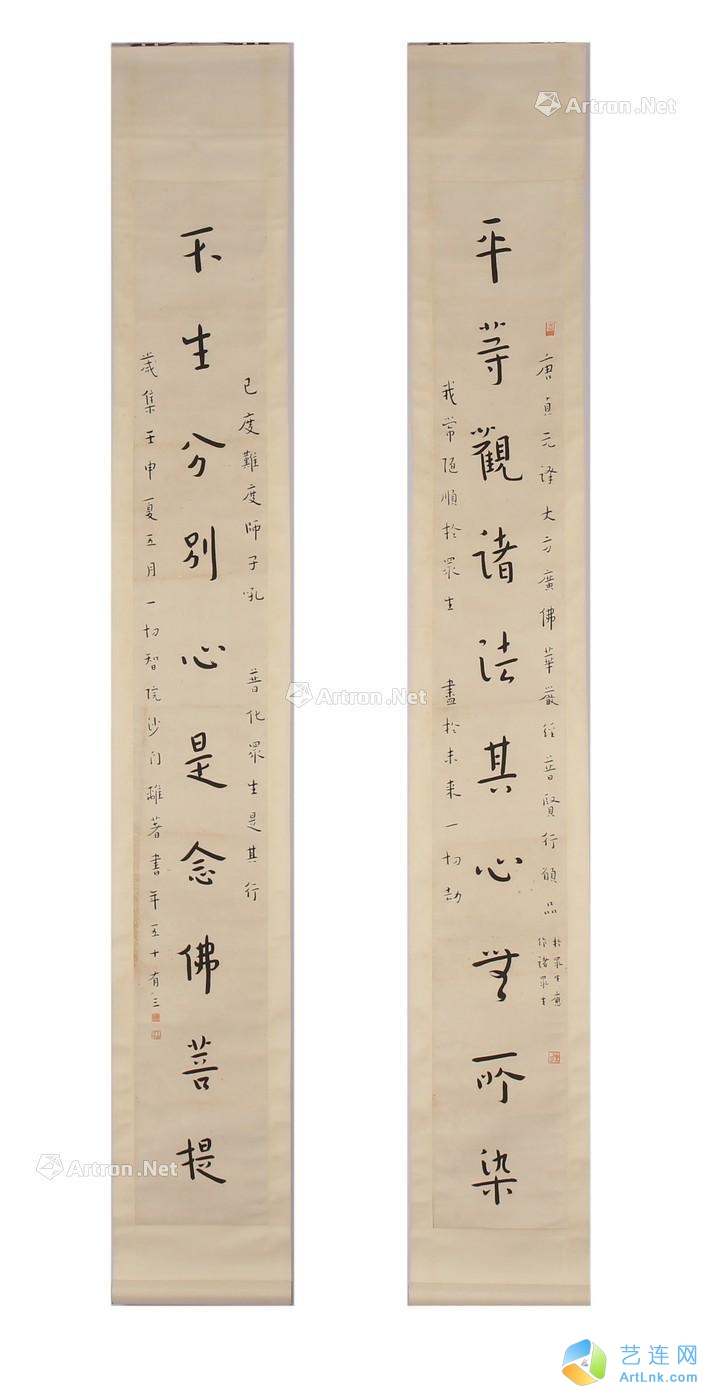 唐貞元譯大方廣佛華嚴經普賢行願品
於眾生應
作諸眾生
平等觀諸法其心無所染
我常隨順於眾生 盡於未來一切劫
已度難度師子吼 普化眾生是其行
不生分別心是念佛菩提
歲集壬申夏五月一切智院沙门離著書年五十有三
Artron.Net
Artron.Net
Artron.Net
Artron.Net
艺连网
ArtLnk.com